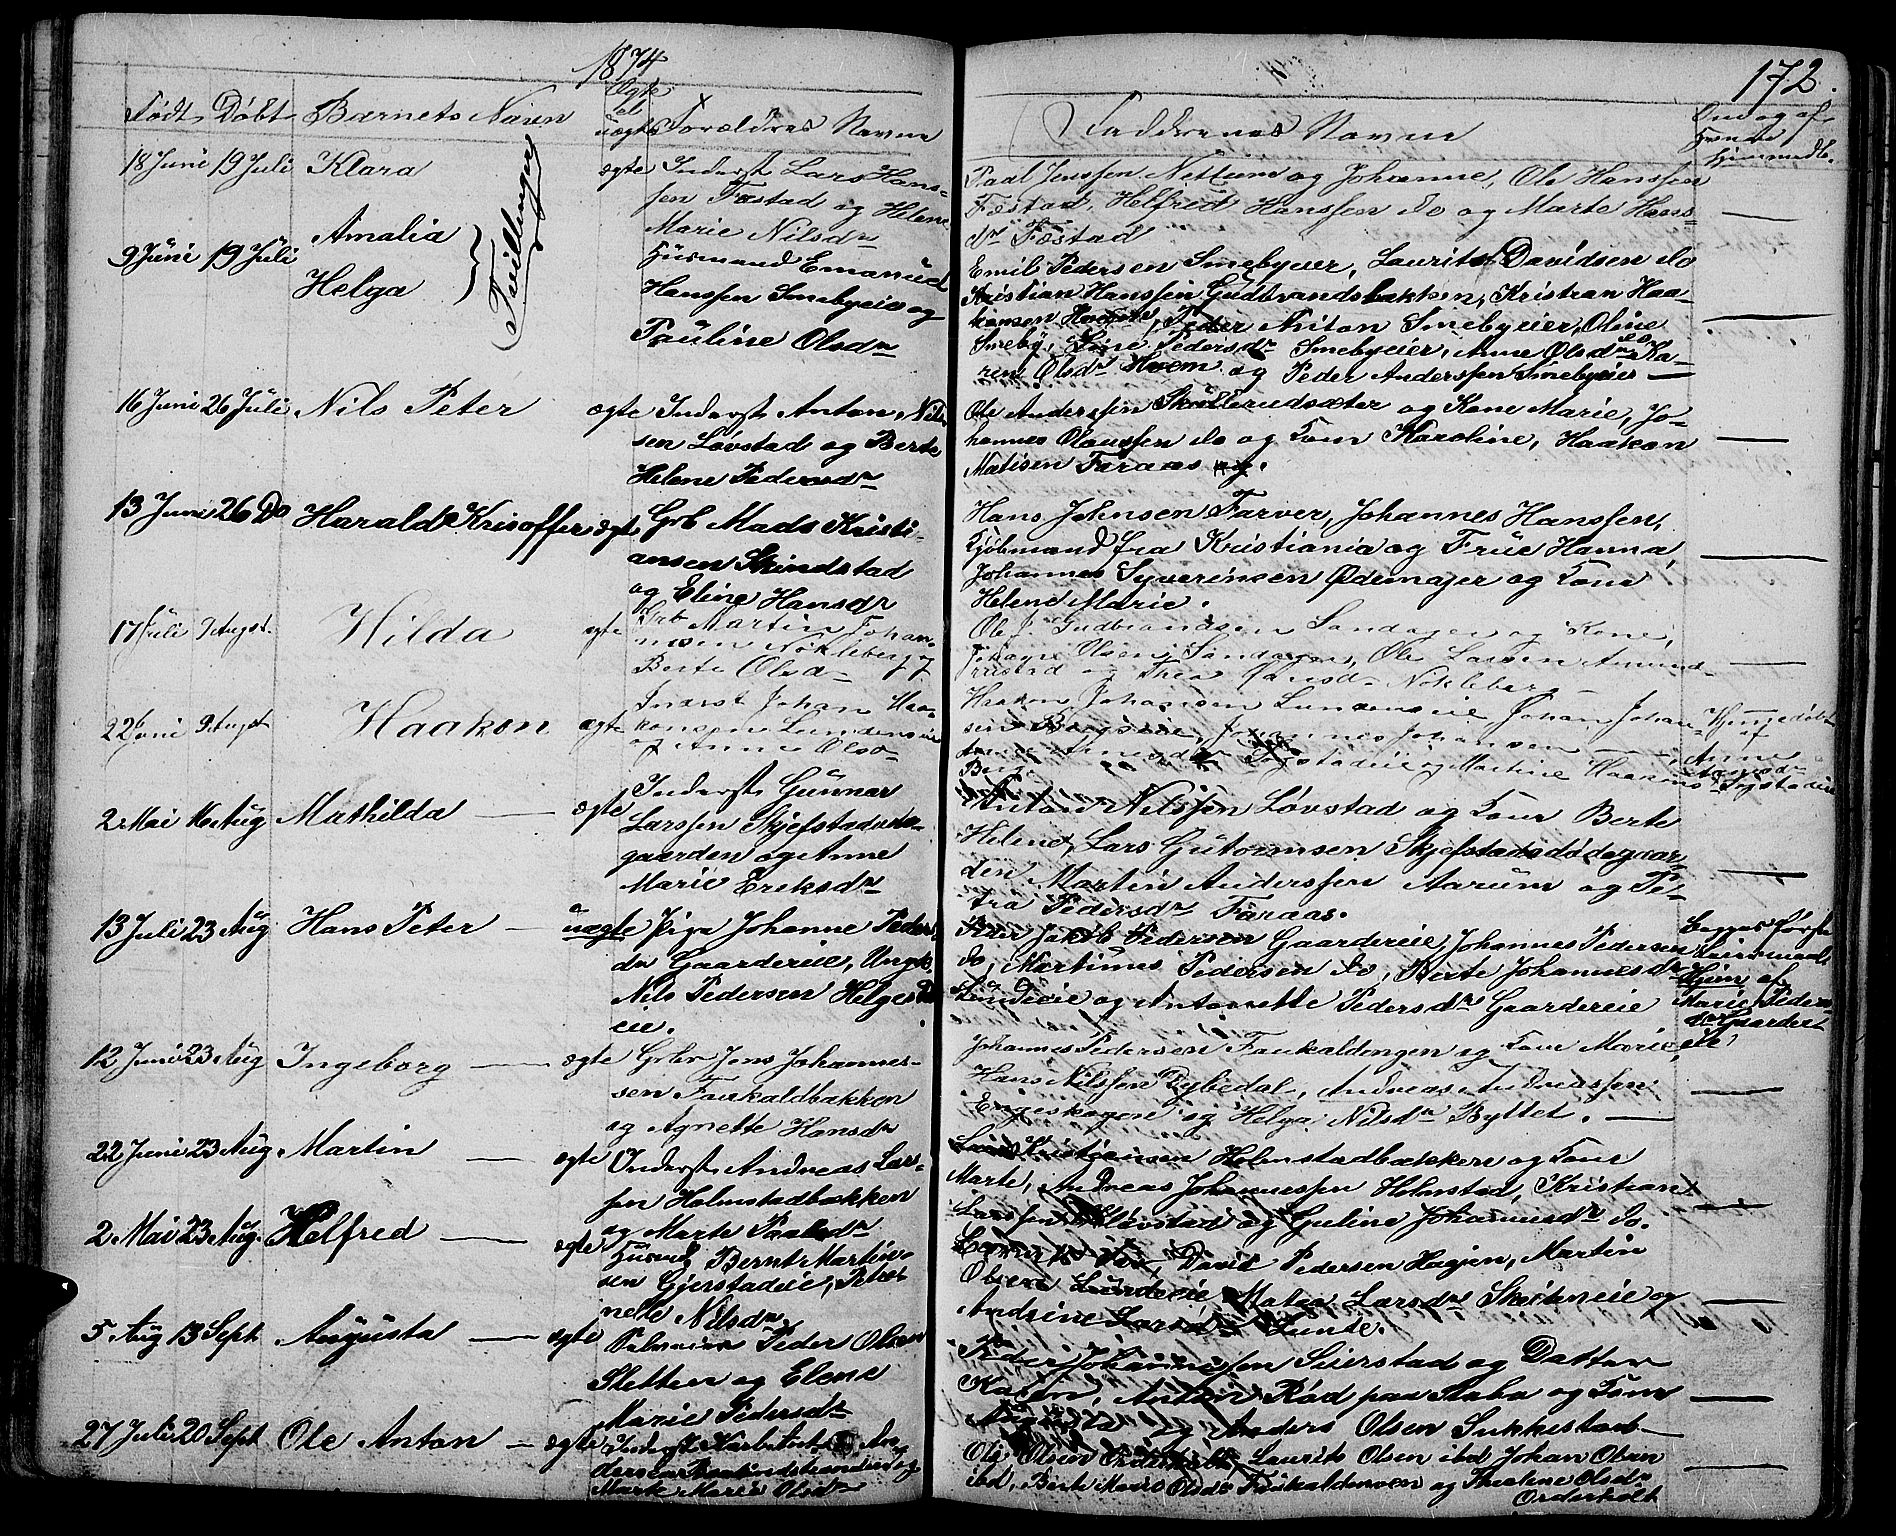 1874
172.
Født Døbt Barnets Navn Ægte el uægte Forældres Navne
Faddernes Navne
18 Juni 19 Juli Klara ægte Inderst Lars Hans-
sen Fæstad og Helene
Marie Nilsdr
Paal Jenssen Nettum og Johanne, Ole Hanssen
Fæstad, Helfred Hanssen do og Marte Hans-
dr Fæstad
9 Juni 19 Juli Amalia
Helga
Tvillinger
Husmand Emanuel
Hanssen Smebyeie og
Pauline Olsdr
Emil Pedersen Smebyeier, Laurits Davidsen do
Kristian Hanssen Gudbrandsbakken, Kristian Haa-
kensen Hvem, Peder Anton Smebyeier, Oline
Smeby, Line Pedersdr Smebyeier, Anne Olsdr do Ka-
ren Olsdr Hvem og Peder Anderssen Smebyeier
16 Juni 26 Juli Nils Peter ægte Inderst Anton Nils-
sen Løvstad og Berte
Helene Pedersdr
Ole Anderssen Skøllerudsæter og Kone Marie, Jo-
hannes Olaussen do og Kone Karoline, Haakon
Matisen Faraas og.
13 Juni 26 Do Harald Krisoffer ægte Grb Mads Kristi-
ansen Skindstad
og Eline Hansdr
Hans Johnsen Farver, Johannes Hanssen,
Kjøbmand fra Kristiania og Frue Hanna,
Johannes Syverinsen Ødemager og Kone
Helene Marie.
17 Juli 9 Augst. Hilda ægte Grb Martin Johan-
nesen Nøkleberg og
Berte Olsd
Ole J. Gudbrandsen Sandager og Kone,
Olsen Sandagen, Ole Larsen Amund-
rustad og Thea Hansd Nøkleberg
22 Juni 9 Augst Haakon ægte Inderst Johan Haa-
konsen Lundeneie
og Anne Olsd
Haakon Johansen Lundeneie Johan Johan-
sen Bergseie, Johannes Johansen
Fogstadeie og Martine Haakens
Berg.
Hjemmedøbt
af
Anne
Hansd
Fogstadeie
2 Mai 16 Aug Mathilda ægte Inderst Gunnar
Larssen Skjefstadøde-
gaarden og Anne
Marie Eriksdr
Anton Nilssen Løvstad og Kone Berte
Helene, Lars Gutormsen Skjefstadødegaar-
den Martin Anderssen Aarum og Pe-
tra Pedersdr Faraas.
13 Juli 23 Aug Hans Peter uægte Pige Johanne Peders-
dr Gaardereie, Ungk.
Nils Pedersen Helgestad-
eie.
Peder Jakob Pedersen Gaardereie, Johannes Pedersen
do, Martinus Pedersen do, Berte Johannesdr
Lundeeie og Antonette Pedersdr Gaardereie
Begges første
Leiermaal
Hjem af
Marie Peders-
dr Gaarder-
eie
12 Juni 23 Aug Ingeborg ægte Grbr Jens Johannes-
sen Faukaldbakken
og Agnette Hansdr
Johannes Pedersen Faukaldengen og Kone Marie,
Hans Nilssen Dybedal, Andreas Andreassen
Engeskogen og Helga Nilsdr Byttet.
22 Juni 23 Aug. Martin ægte Inderst Andreas Lar-
sen Holmstadbakken
og Marte Paalsdr
Lars Kristiansen Holmstadbakken og Kone
Marte, Andreas Johannessen Holmstad, Kristian
Larssen Kløvstad og Guline Johannesdr do.
2 Mai 23 Aug. Helfred ægte Husmd Bernt Martin-
sen Gjerstadeie, Peter-
nelle Nilsdr
David Pedersen Hagen, Martin
Olsen Lundeeie Maten Larsdr Skeikneie og
Andrine Larsdr Lunde.
5 Aug 13 Sept Augusta ægte Pelmaier Peder Olsen
Sletten og Elene
Marie Pedersdr
Peder Johannessen Seierstad og Datter
Karen, Anton Rød paa Staba og Kone
Augusta og Anders Olsen Sukkestad
27 Juli 20 Sept Ole Anton ægte Inderst An-
dersen og
Marte Marie Olsdr
Ole Olsen Laurits Olsen ibd Johan Olsen
ibd, Berte Marie Olsdr Faukaldenen og Olsdr
Orderholt